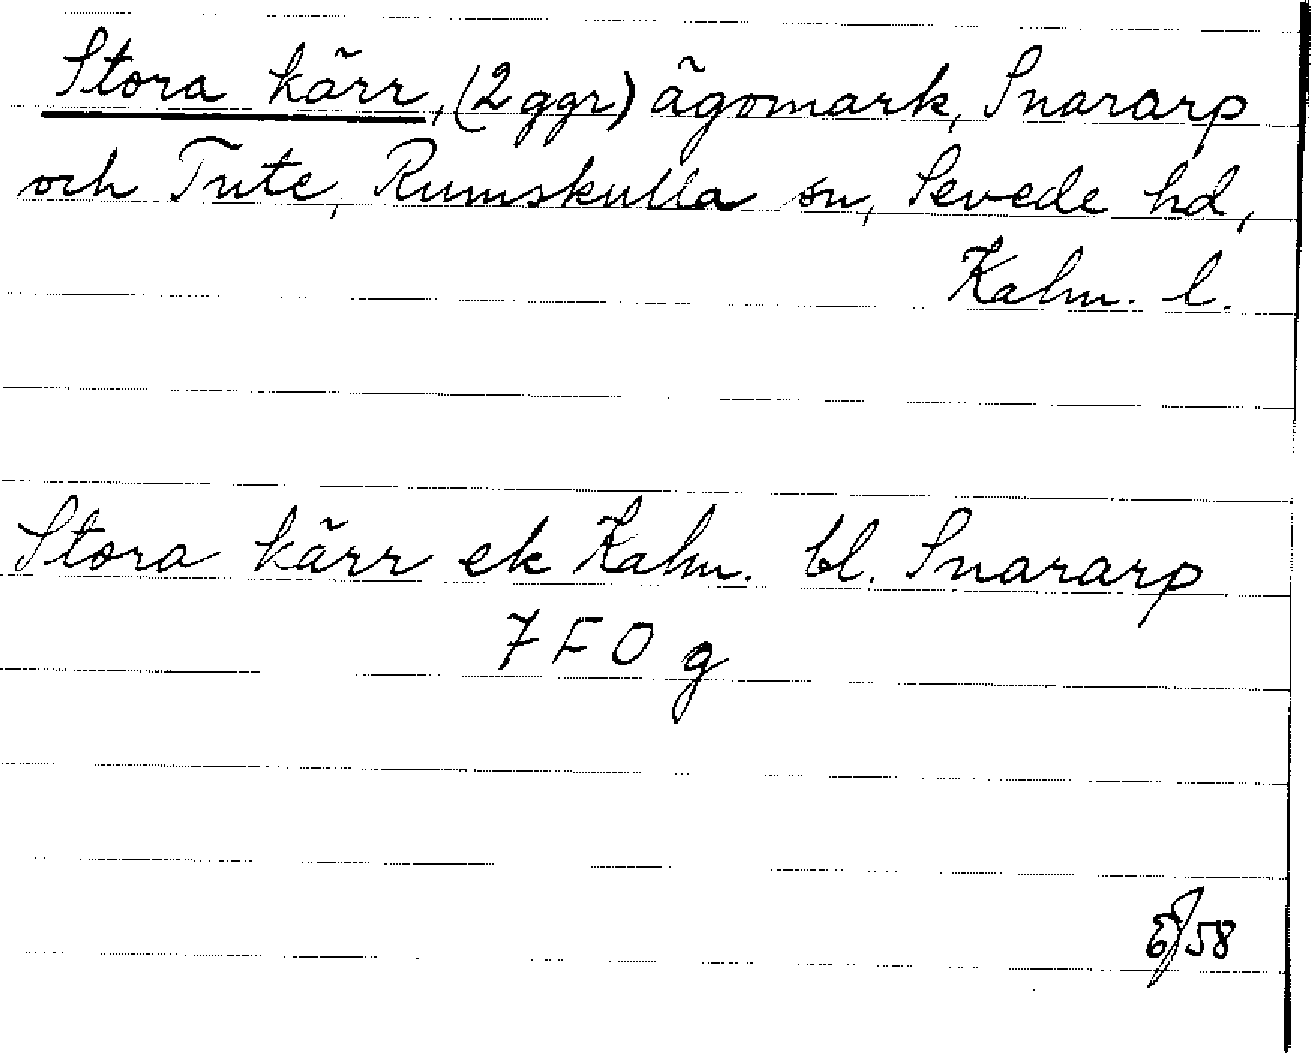 Stora kärr, (2 ggr) ägomark, Snararp
och Tute, Rumskulla sn, Sevede hd,
Kalm. l.
Stora kärr ek Kalm. bl. Snararp
7 F 0 g
/58